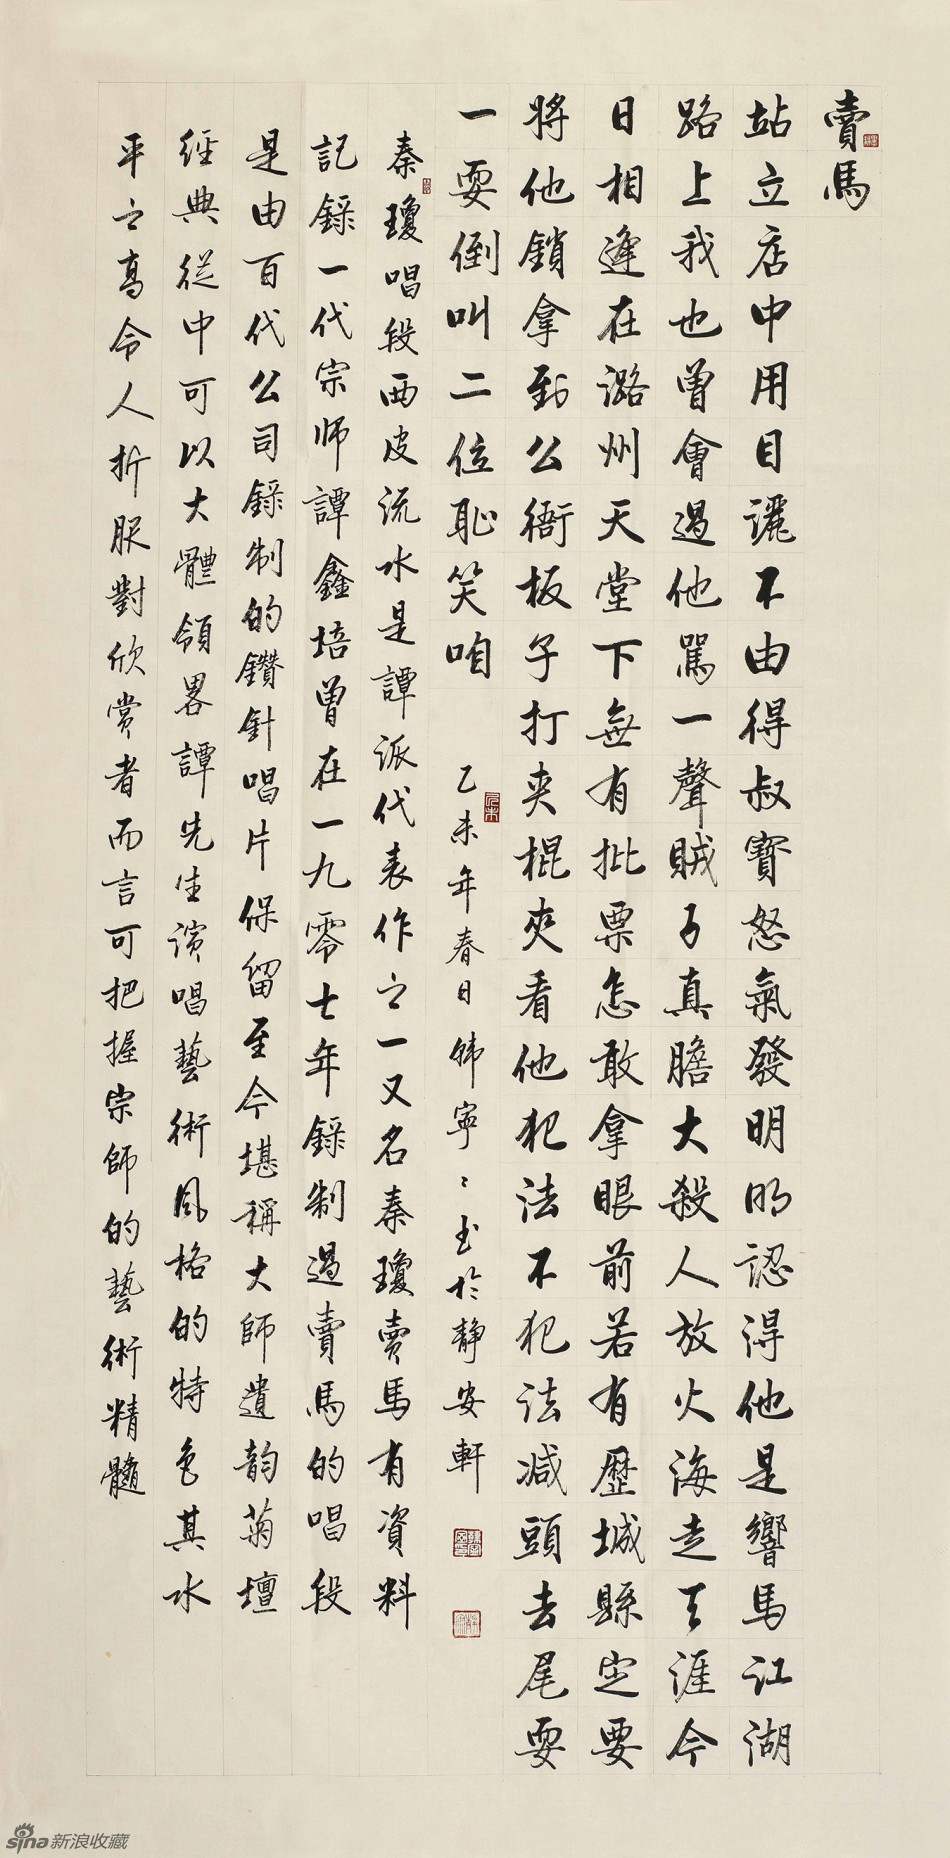 賣馬
站立店中用目灑不由得叔寳怒氣發明明認得他是響馬江湖
路上我也曾會過他罵一聲賊子真膽大殺人放火海走天涯今
日相逢在潞州天堂下無有批票怎敢拿眼前若有歷城縣定要
將他鎖拿到公衙板子打夾棍夾看他犯法不犯法减頭去尾耍
一耍倒叫二位恥笑咱
乙未年春日韩寧寧书於靜安軒
秦瓊唱段西皮流水是譚派代表作之一又名秦瓊賣馬有資料
記錄一代宗师譚鑫培曾在一九零七年錄制過賣馬的唱段
是由百代公司錄制的鑽針唱片保留至今堪稱大師遺韵菊壇
經典從中可以大體領畧譚先生演唱藝術风格的特色其水
平之高令人折服對欣赏者而言可把握宗師的藝術精髓
sina新浪收藏